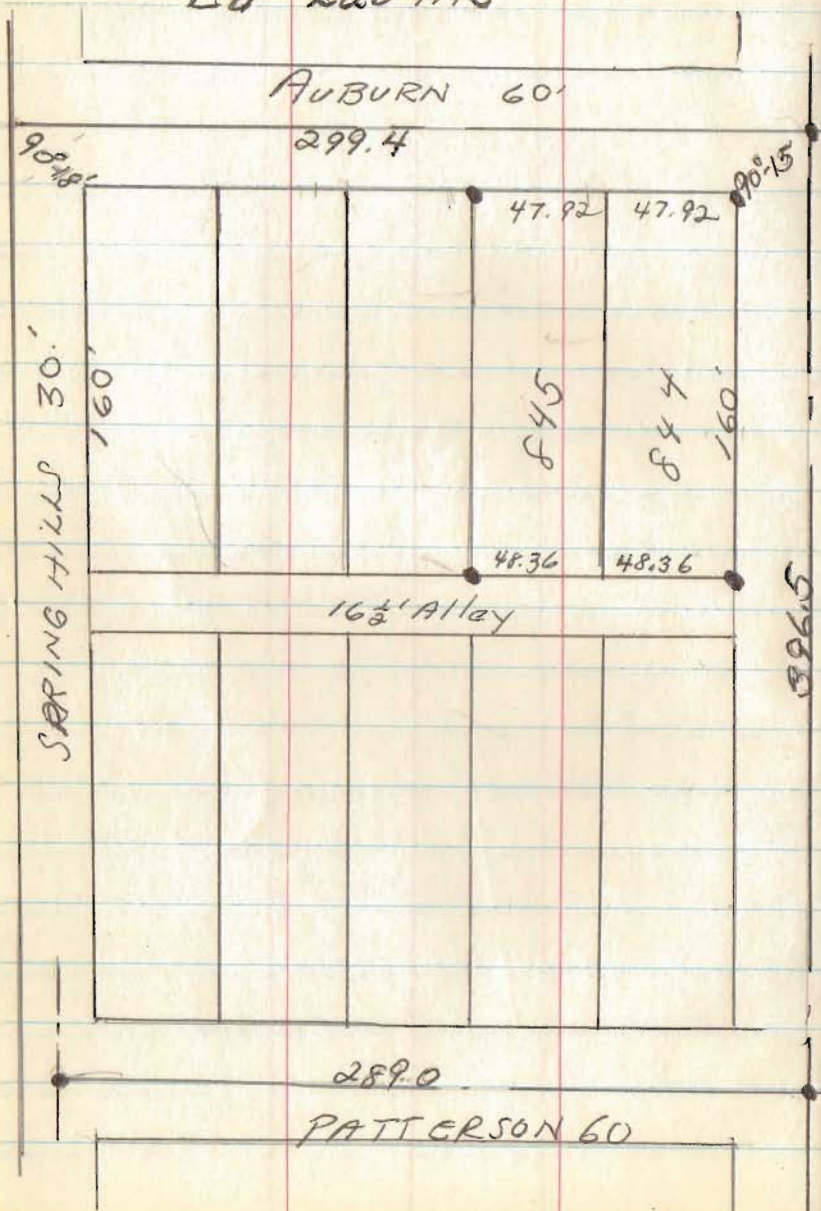 AUBURN 60'
299.4
90°-18'
90°-15
47.92 47.92
SPRING HILLS 30.'
160'
845
844
160'
48.36 48.36
16½' Alley
396.5
289.0
PATTERSON 60